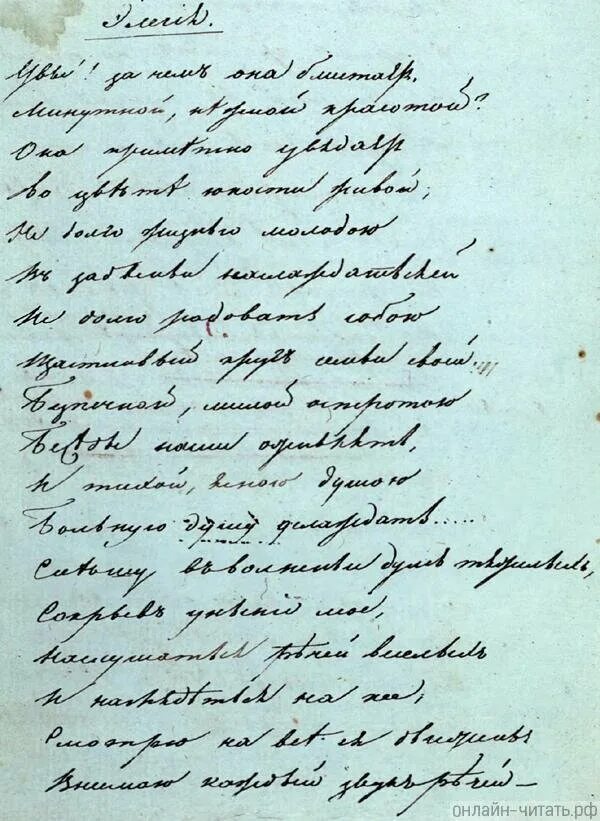 Элегія.
Увы! за чемъ она блистаетъ
Минутной, нѣжной красотой?
Она примѣтно увядаетъ
Во цвѣтѣ юности живой;
Не долго жизнью молодою
Ей наслаждаться
Не долго радовать собою
Щастливый кругъ семьи своей
Безпечной, милой остротою
Бесѣды наши оживлять,
И тихой, ясною душою
Больную душу услаждать.....
Спѣшу въ волненьи думъ тяжелыхъ,
Сокрывъ унынiе мое,
Наслушаться рѣчей веселыхъ
И наглядѣться на нее;
Смотрю на всѣ ея движенья
Внимаю каждый звукъ рѣчей—
онлайн-читать.рф